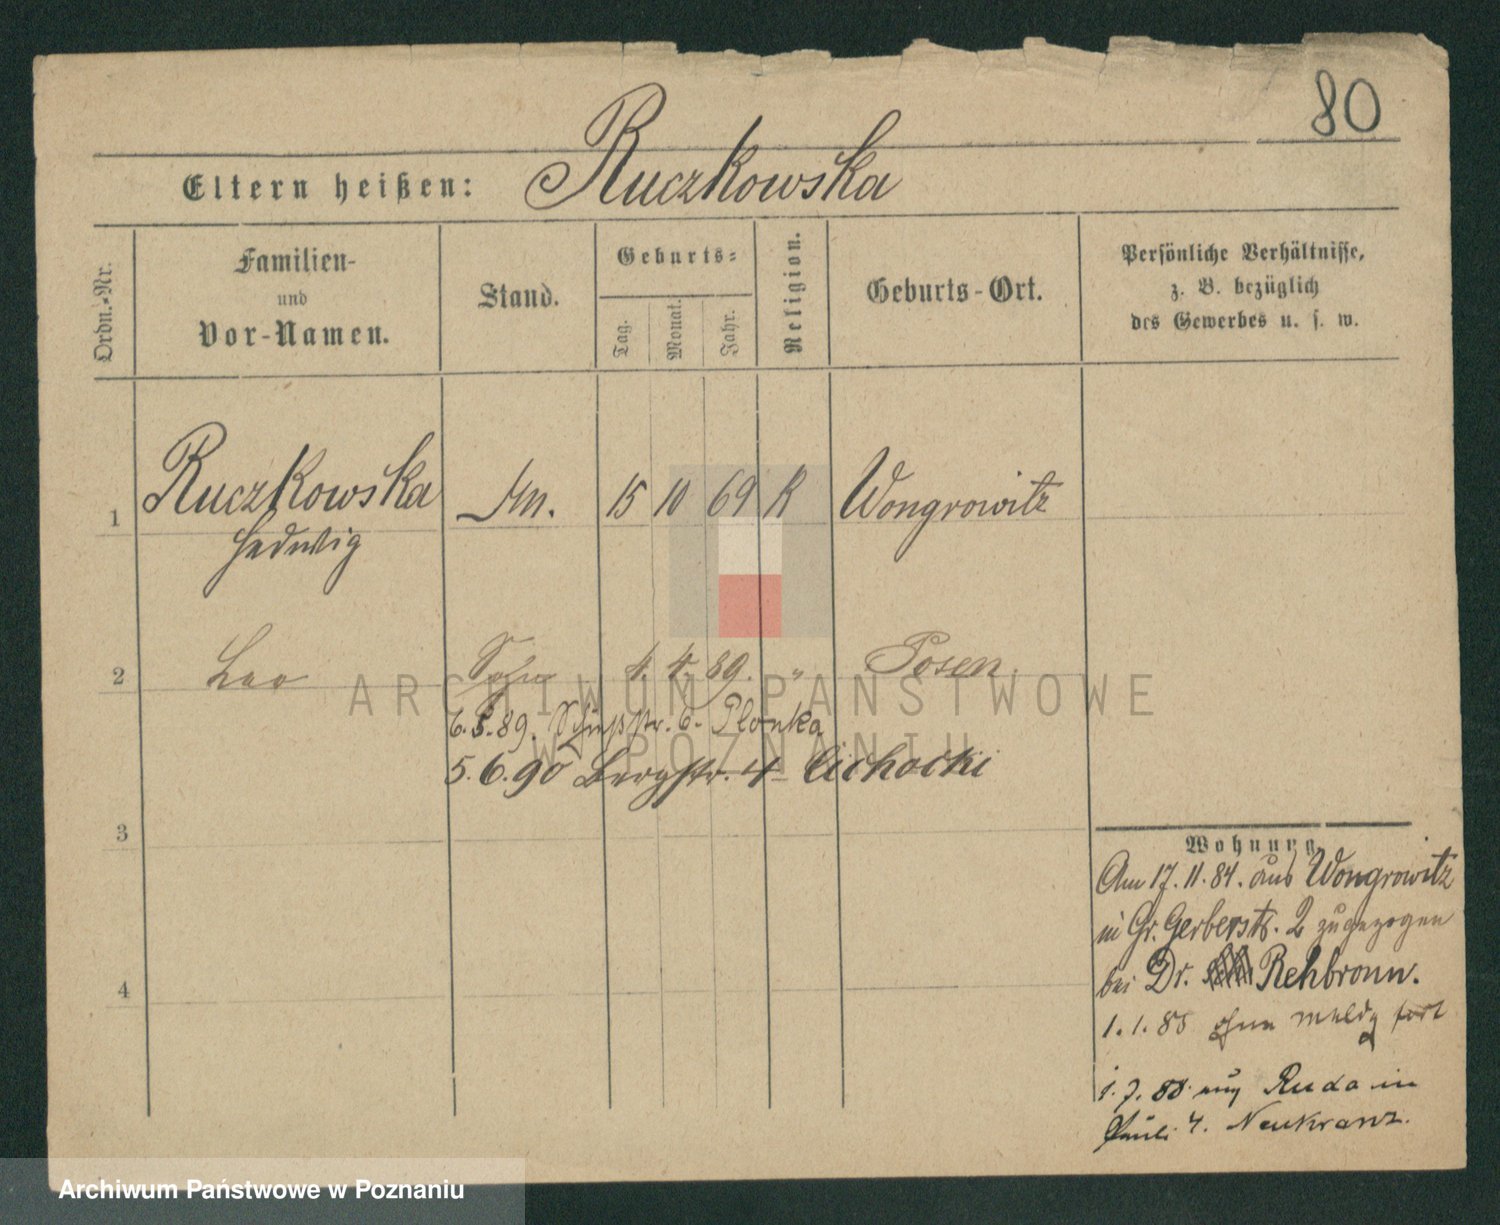 80
Eltern heißen: Ruczkowska
Ordn.-Nr.
Familien-
und
Vor-Namen.
Stand.
Geburts=
Tag.
Monat.
Jahr.
Religion.
Geburts-Ort.
Persönliche Verhältnisse,
z. B. bezüglich
des Gewerbes u. s. w.
1 Ruczkowska 15 10 69 K Wongrowitz
Hedwig
2 Leo Sohn 4. 4. 89. " Posen.
ARCHIWUM PAŃSTWOWE
W POZNANIU
6. 89. Schießstr. 6. Plonka
5.6.90 Bergstr. 4 Cichocki
3
4
Wohnung
Am 17.11.84. aus Wongrowitz
in Gr. Gerberstr. 2 zugezogen
bei Dr. Rehbronn.
1.1.85 ohne Meldg fort
1.7.88 aus Ruda in
Pauli 4. Neukranz.
Archiwum Państwowe w Poznaniu